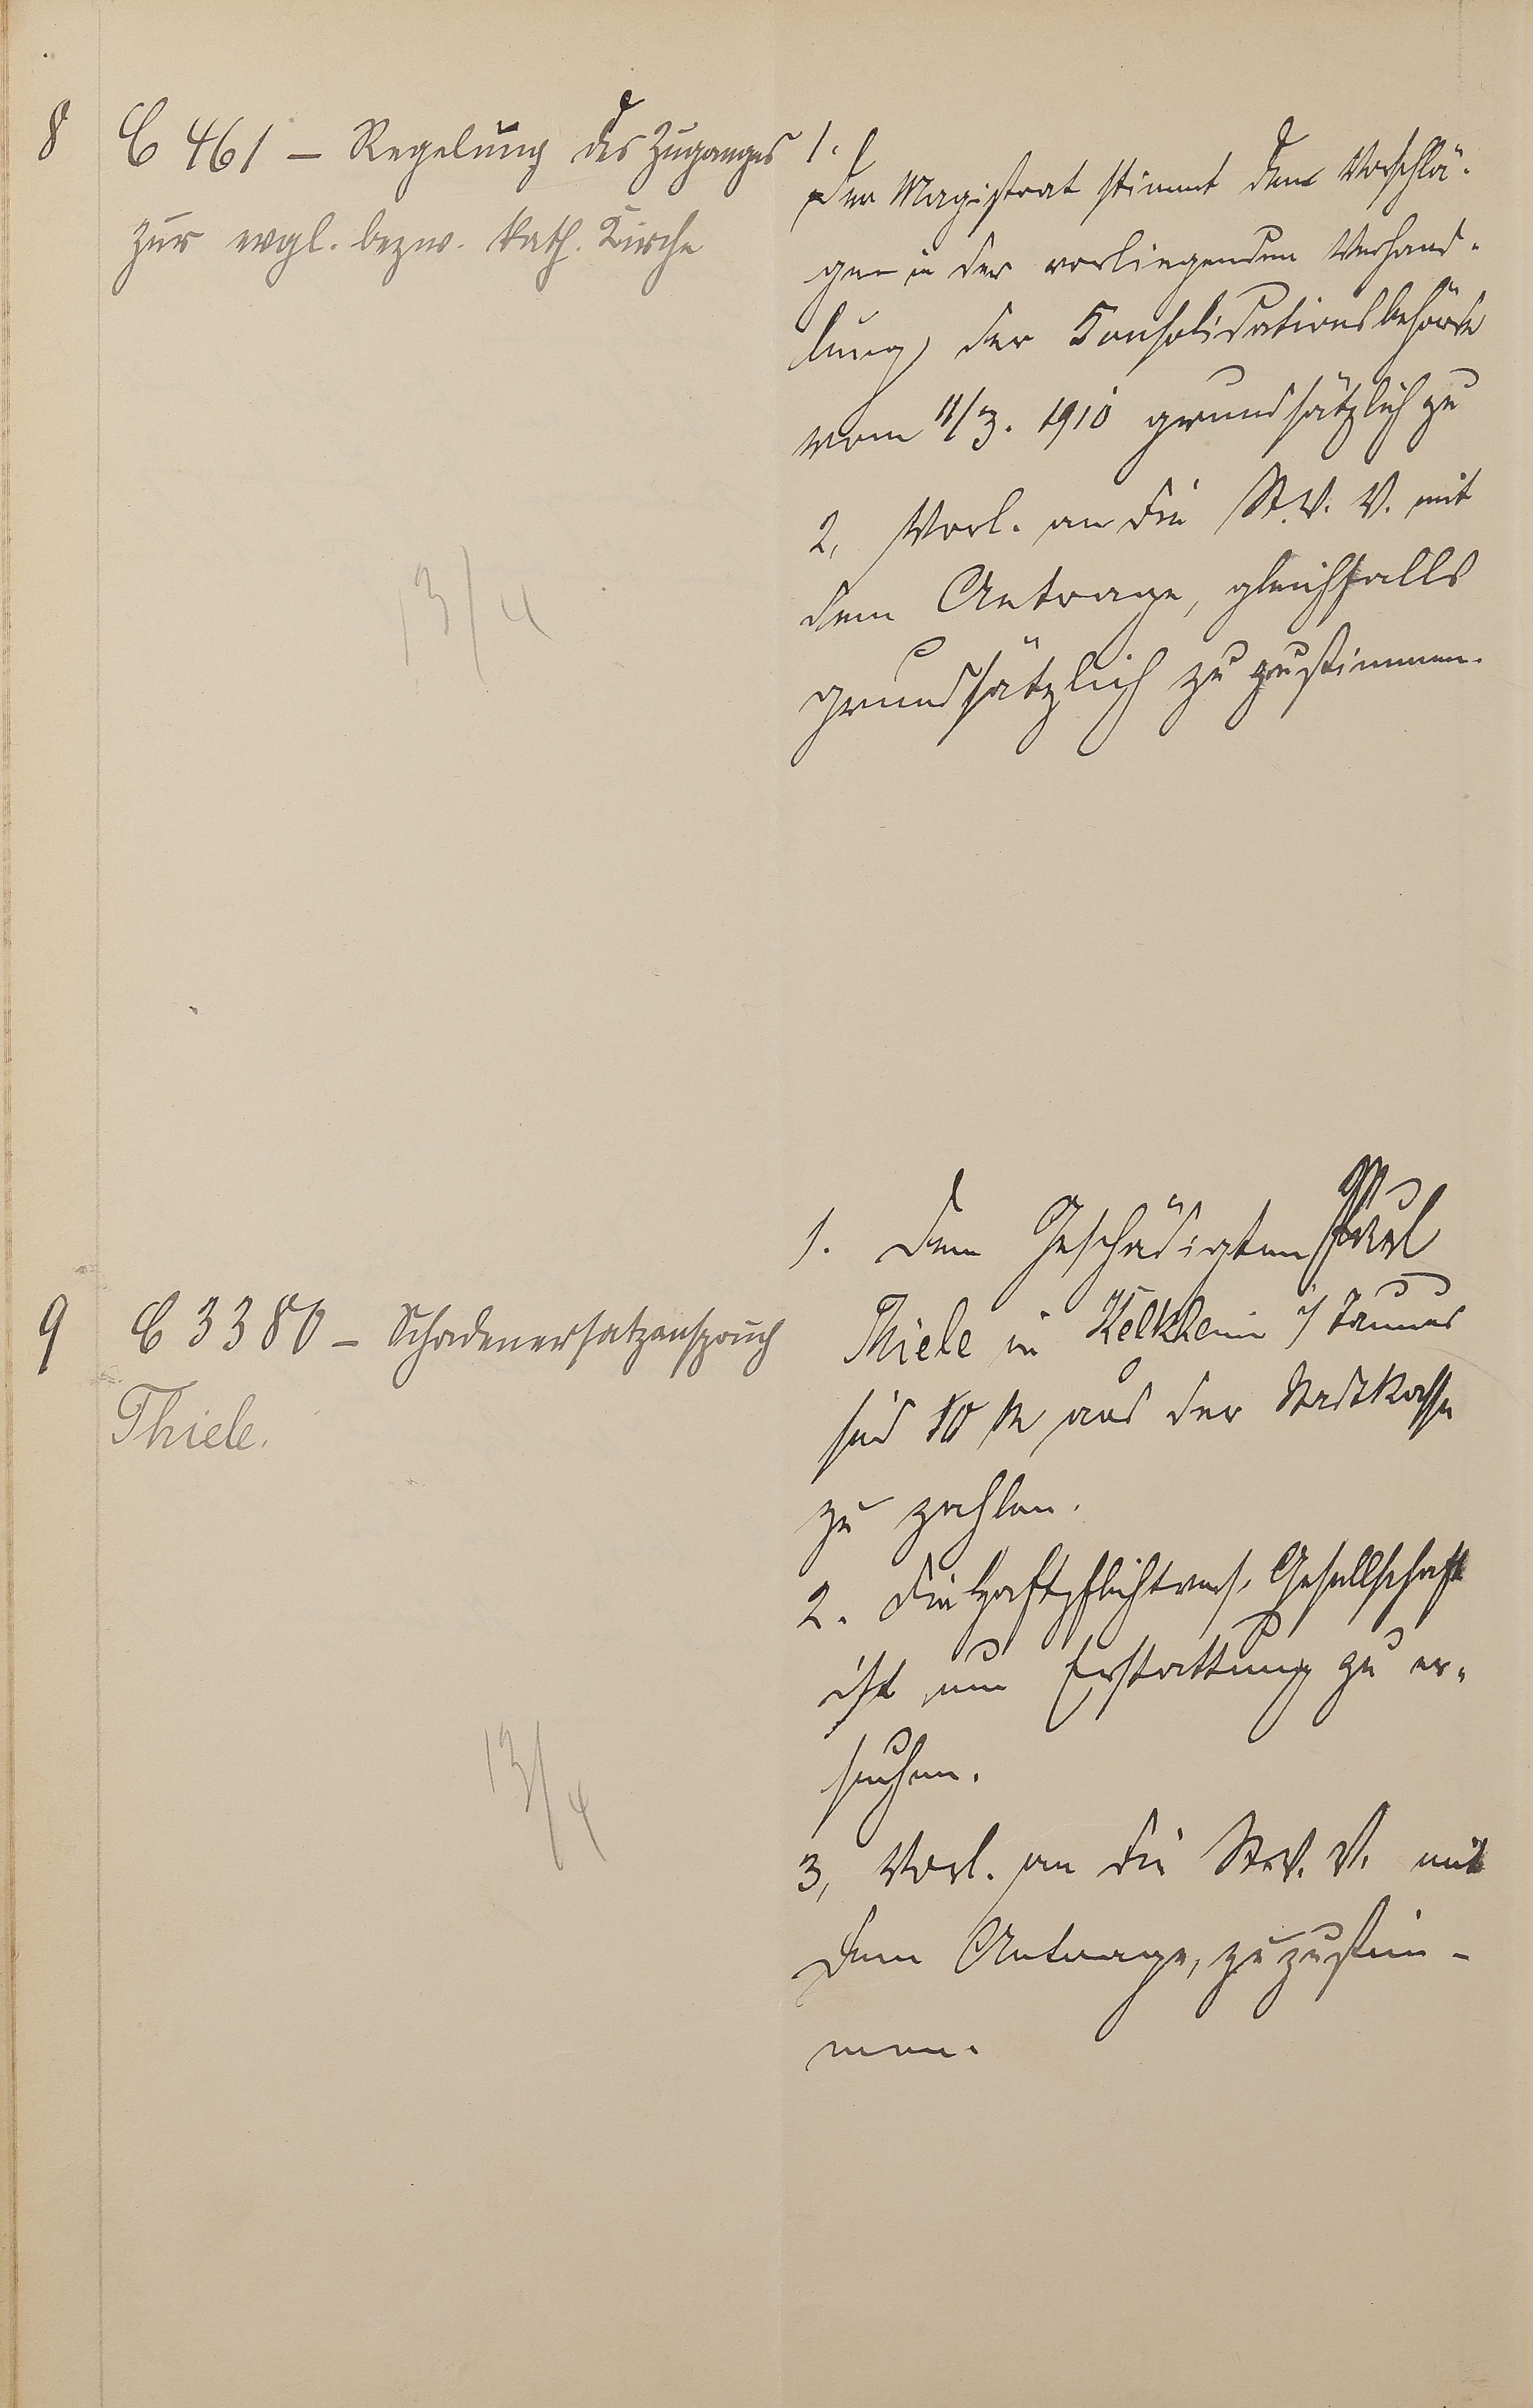 8
C 461 – Regelung des Zuganges
zur evgl. bezw. kath. Kirche
13/4
1.
Der Magistrat stimmt den Vorschlä-
gen in der vorliegenden Verhand-
lung der Konsolidationsbehörde
vom 11/3. 1910 grundsätzlich zu
2, Vorl. an die St. V. V. mit
dem Antrage, gleichfalls
grundsätzlich zu zustimmen.
9
C 3380 – Schadenersatzanspruch
Thiele.
13/4
1. Dem Geschädigten
Thiele in Kelkheim i/Taunus
sind 10 M aus der Stadtkasse
zu zahlen.
2. Die Haftpflichtvers. Gesellschaft
ist um Erstattung zu er-
suchen.
3, Vorl. an die St. V. V. mit
dem Antrage, zuzustim-
men.